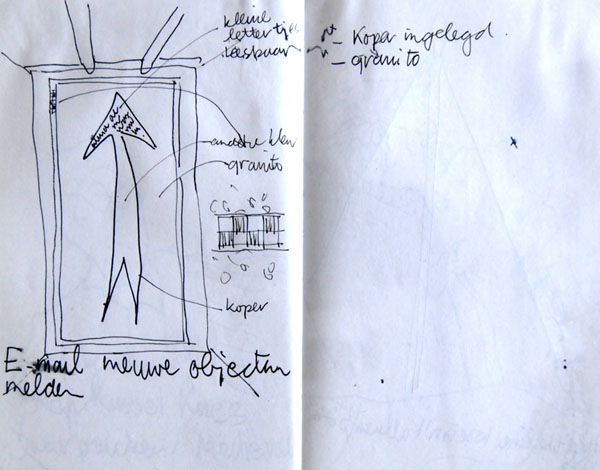 kleine
lettertjes
leesbaar
andere kleur
granito
koper
E-mail nieuwe objecten
melden
— Koper ingelegd.
— granito